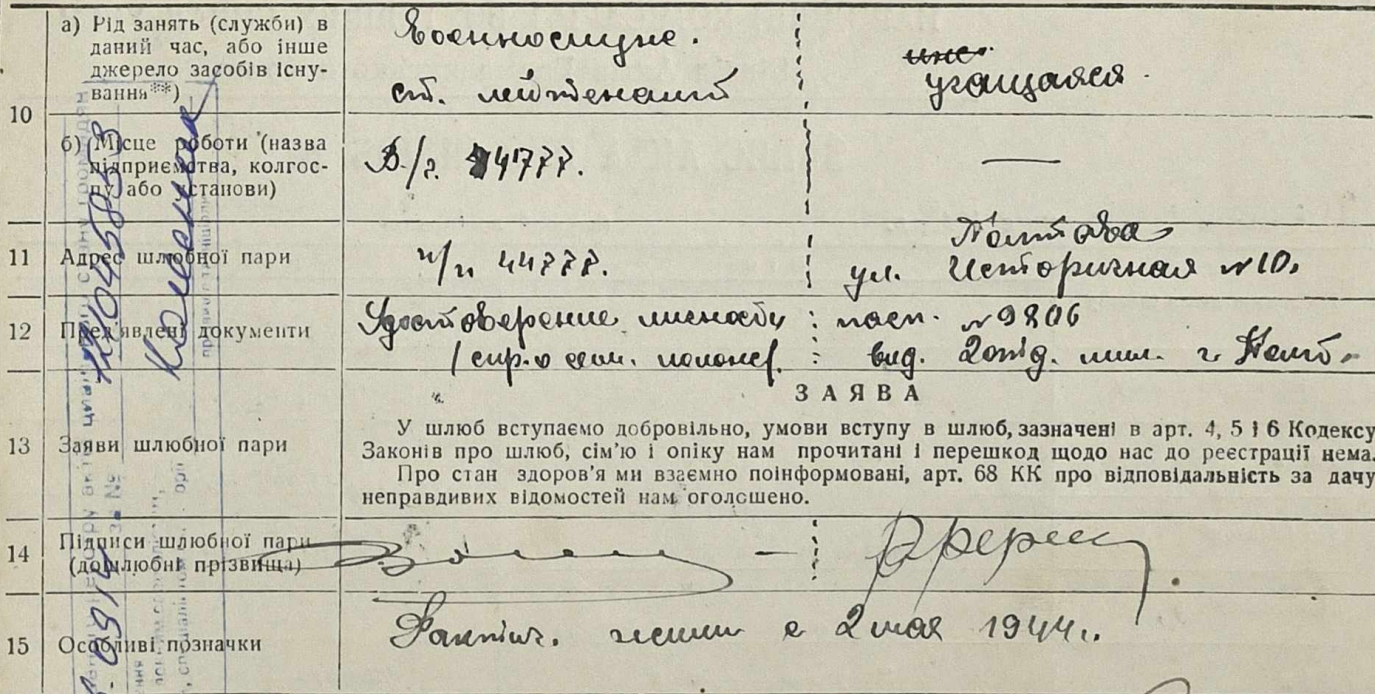 а) Рід занять (служби) в
даний час, або інше
джерело засобів існу-
вання**)
10
Военнослуж.
ст. лейтенант
учащаяся.
б) Місце роботи (назва
підприємства, колгос-
пу або установи)
В./ч. 44777.
—
11
Адрес шлюбної пари
п/п 44777.
Полтава
ул. Историчная №10.
12
Пред'явлені документи
Удостоверение личности
/спр. о сем. полож/.
пасп. №9806
вид. 2 отд. мил. г. Полт.
ЗАЯВА
13
Заяви шлюбної пари
У шлюб вступаємо добровільно, умови вступу в шлюб, зазначені в арт. 4, 5 і 6 Кодексу
Законів про шлюб, сім'ю і опіку нам прочитані і перешкод щодо нас до реєстрації нема.
Про стан здоров'я ми взаємно поінформовані, арт. 68 КК про відповідальність за дачу
неправдивих відомостей нам оголошено.
14
Підписи шлюбної пари
(дошлюбні прізвища)
15
Особливі позначки
Фактич. жили с 2 мая 1944г.